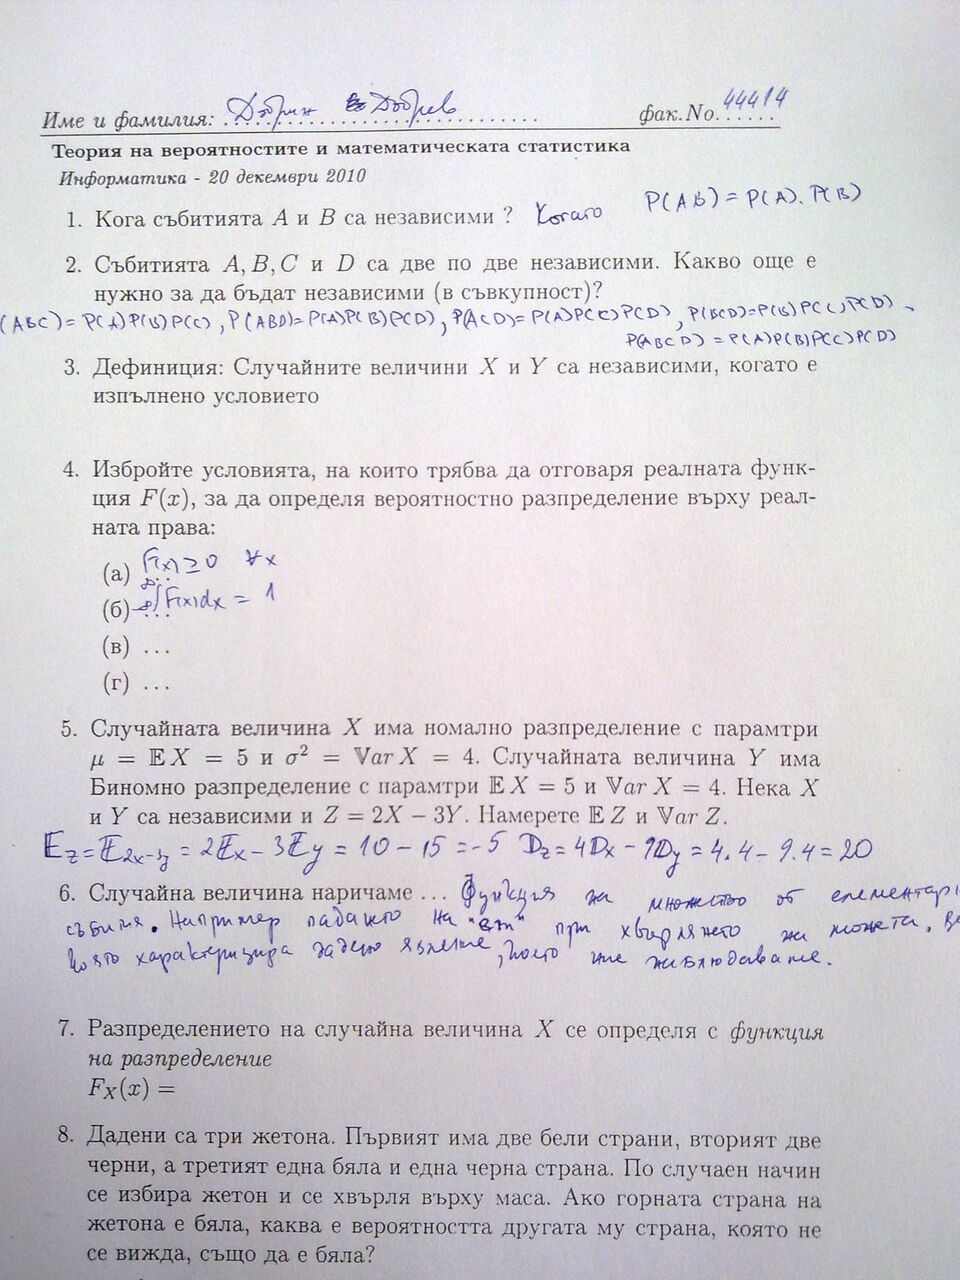 Име и фамилия: Добрин Добрев фак.No. 44414
Теория на вероятностите и математическата статистика
Информатика - 20 декември 2010
1. Кога събитията A и B са независими ? Когато P(AB) = P(A). P(B)
2. Събитията A, B, C и D са две по две независими. Какво още е
нужно за да бъдат независими (в съвкупност)?
(ABC)= P(A)P(B)P(C), P(ABD)=P(A)P(B)P(D), P(ACD)= P(A)P(C)P(D), P(BCD)=P(B)P(C)P(D),
P(ABCD) = P(A)P(B)P(C)P(D)
3. Дефиниция: Случайните величини X и Y са независими, когато е
изпълнено условието
4. Избройте условията, на които трябва да отговаря реалната функ-
ция F(x), за да определя вероятностно разпределение върху реал-
ната права:
(а) F(x) ≥ 0 ∀x
(б) -∞∫∞ F(x)dx = 1
(в) ...
(г) ...
5. Случайната величина X има номално разпределение с парамтри
μ = 𝔼X = 5 и σ² = 𝕍ar X = 4. Случайната величина Y има
Биномно разпределение с парамтри 𝔼X = 5 и 𝕍ar X = 4. Нека X
и Y са независими и Z = 2X − 3Y. Намерете 𝔼Z и 𝕍ar Z.
Ez = E2x-3y = 2Ex − 3Ey = 10 − 15 = -5 Dz = 4Dx − 9Dy = 4.4 − 9.4 = 20
6. Случайна величина наричаме ... функция на множество от елементарни
събития. Например падането на "ези" при хвърлянето на монета.
която характеризира дадено явление, което ние наблюдаваме.
7. Разпределението на случайна величина X се определя с функция
на разпределение
F_X(x) =
8. Дадени са три жетона. Първият има две бели страни, вторият две
черни, а третият една бяла и една черна страна. По случаен начин
се избира жетон и се хвърля върху маса. Ако горната страна на
жетона е бяла, каква е вероятността другата му страна, която не
се вижда, също да е бяла?